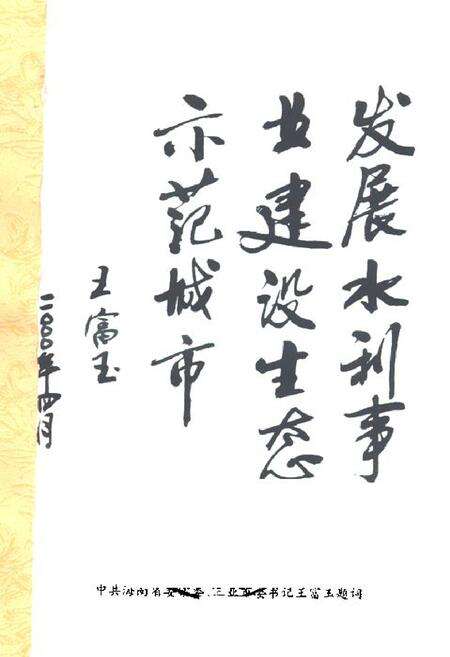 发展水利事
业建设生态
示范城市
王富玉
二〇〇〇年四月
中共海南省委常委、三亚市委书记王富玉题词